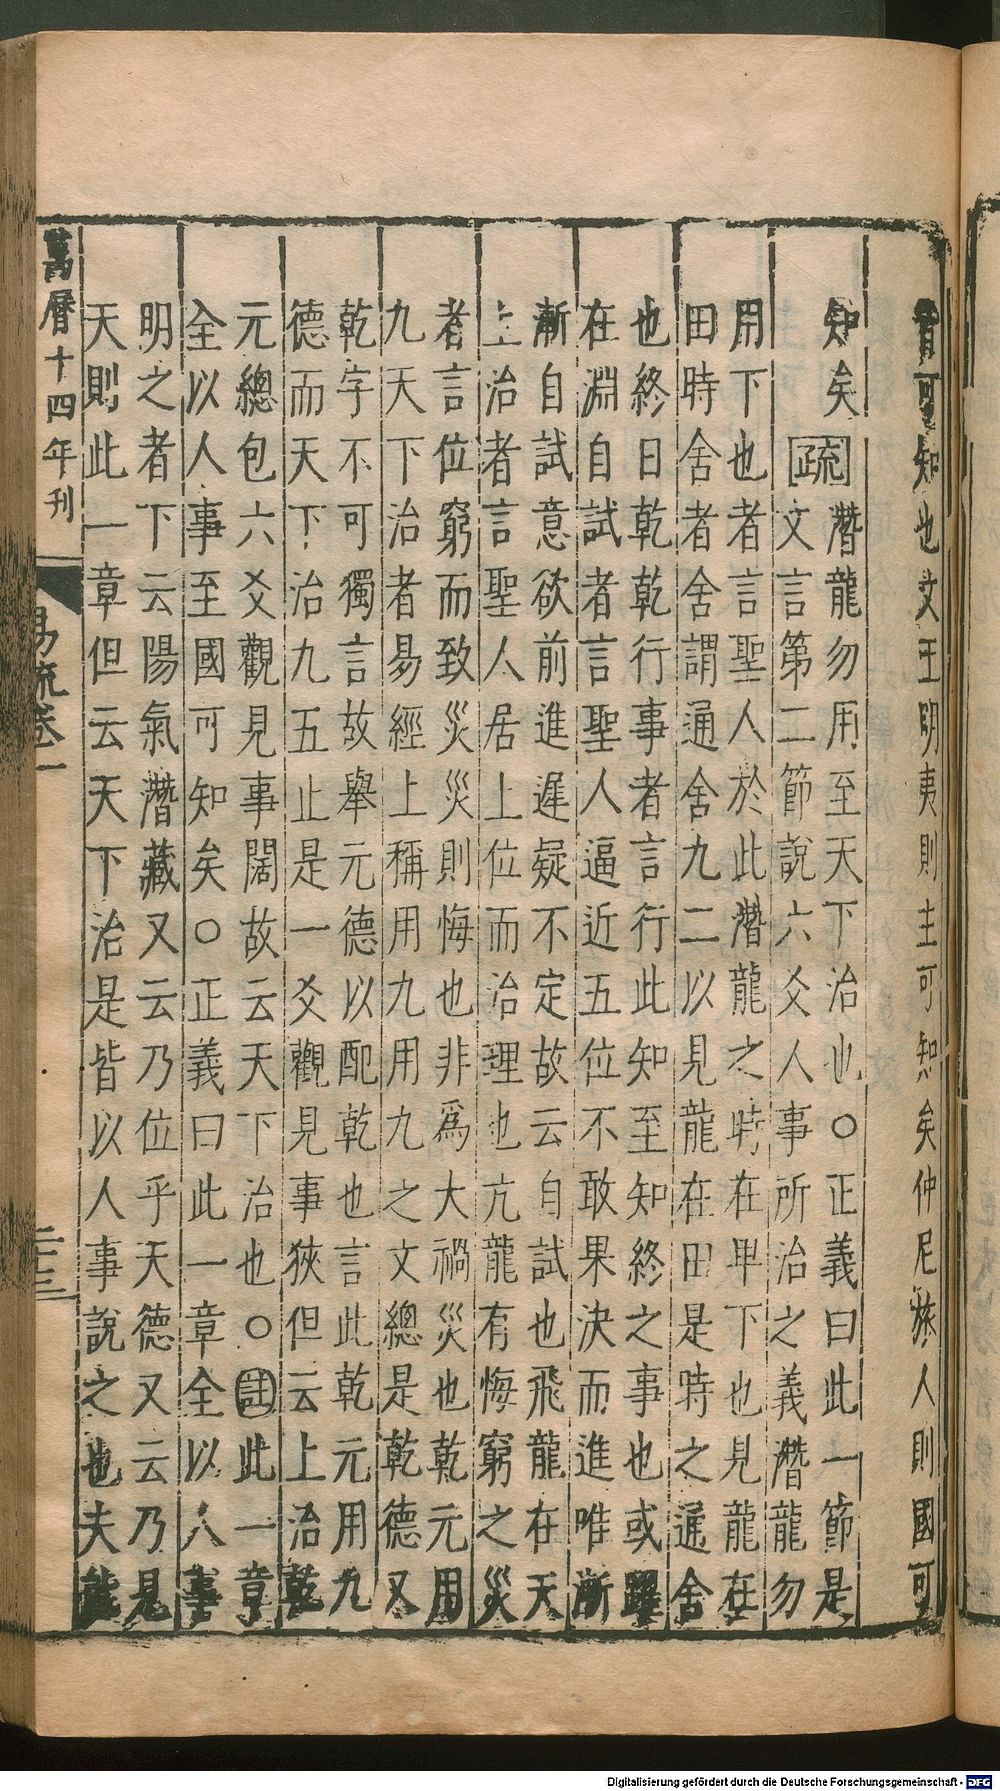 皆可知也文王明夷則主可知矣仲尼旅人則國可
知矣疏潛龍勿用至天下治也○正義曰此一節是
文言第二節說六爻人事所治之義潛龍勿
用下也者言聖人於此潛龍之時在卑下也見龍在
田時舍者舍謂通舍九二以見龍在田是時之通舍
也終日乾乾行事者言行此知至知終之事也或躍
在淵自試者言聖人逼近五位不敢果決而進唯漸
漸自試意欲前進遲疑不定故云自試也飛龍在天
上治者言聖人居上位而治理也亢龍有悔窮之災
者言位窮而致災災則悔也非為大禍災也乾元用
九天下治者易經上稱用九用九之文總是乾德又
乾字不可獨言故舉元德以配乾也言此乾元用九
德而天下治九五止是一爻觀見事狹但云上治乾
元總包六爻觀見事闊故云天下治也○註此一章
全以人事至國可知矣○正義曰此一章全以人事
明之者下云陽氣潛藏又云乃位乎天德又云乃見
天則此一章但云天下治是皆以人事說之也夫能
萬曆十四年刊
易疏卷一
二十三
Digitalisierung gefördert durch die Deutsche Forschungsgemeinschaft - DFG